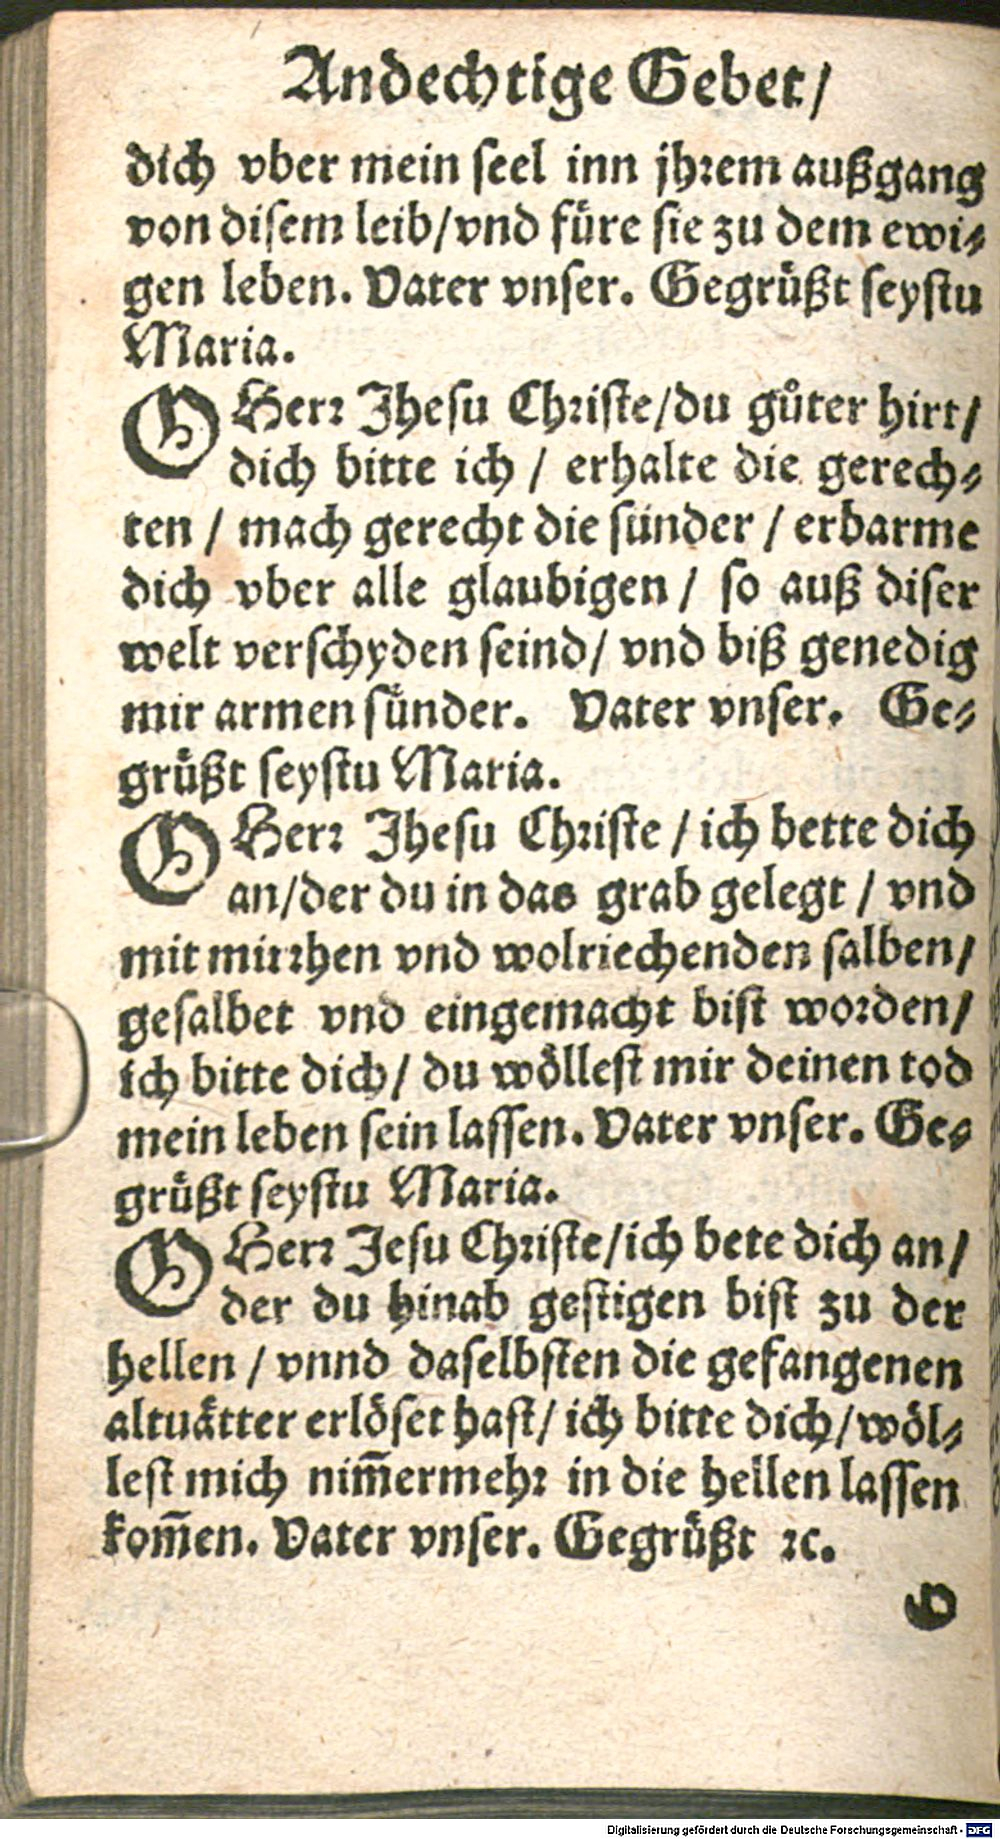 Andechtige Gebet/
dich vber mein seel inn jhrem außgang
von disem leib/vnd fuͤre sie zu dem ewi⸗
gen leben. Vater vnser. Gegruͤßt seystu
Maria.
O Herr Jhesu Christe/du guͦter hirt/
dich bitte ich / erhalte die gerech⸗
ten / mach gerecht die sünder / erbarme
dich vber alle glaubigen / so auß diser
welt verschyden seind/ vnd biß genedig
mir armen suͤnder. Vater vnser. Ge⸗
gruͤßt seystu Maria.
O Herr Jhesu Christe / ich bette dich
an/der du in das grab gelegt / vnd
mit mirrhen vnd wolriechenden salben/
gesalbet vnd eingemacht bist worden/
ich bitte dich/ du woͤllest mir deinen tod
mein leben sein lassen. Vater vnser. Ge⸗
gruͤßt seystu Maria.
O Herr Jesu Christe/ich bete dich an/
der du hinab gestigen bist zu der
hellen / vnnd daselbsten die gefangenen
altuaͤtter erloͤset hast/ ich bitte dich/woͤl⸗
lest mich nim̄ermehr in die hellen lassen
kom̄en. Vater vnser. Gegruͤßt ꝛc.
O
Digitalisierung gefördert durch die Deutsche Forschungsgemeinschaft - DFG